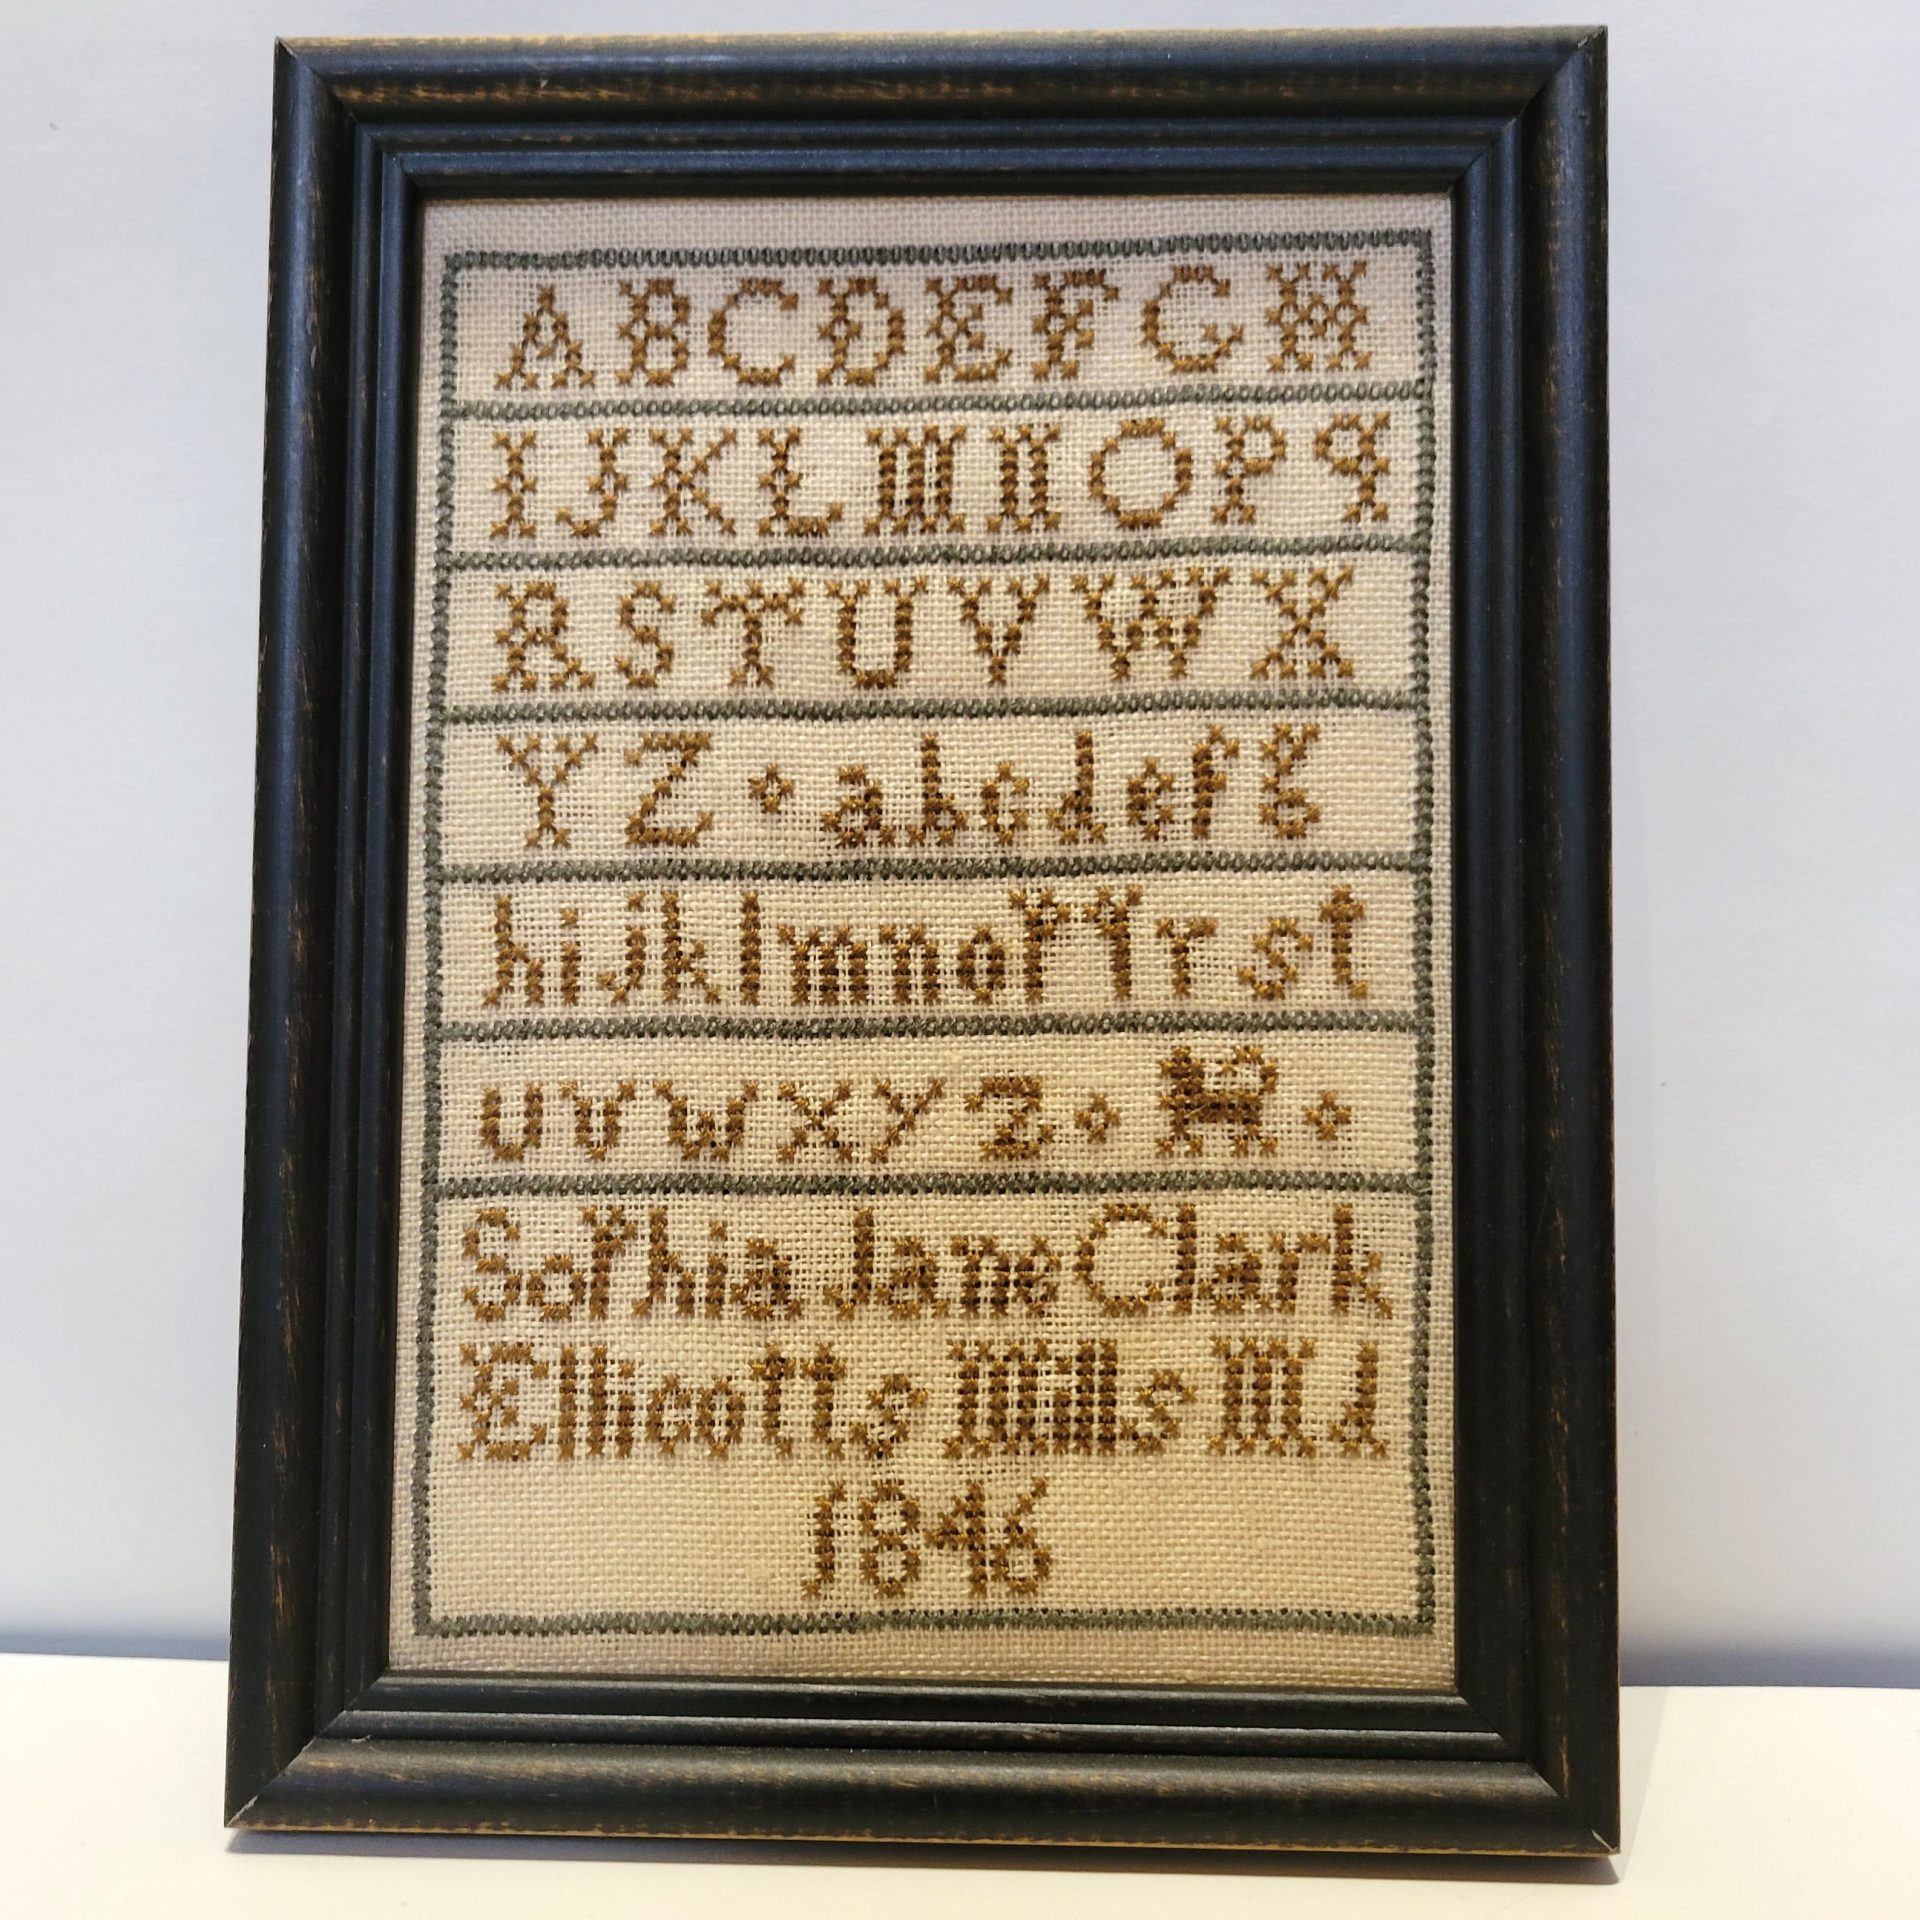 ABCDEFGH
IJKLMNOPQ
RSTUVWX
YZ abcdefg
hijklmnopqrst
uvwxyz &
Sophia Jane Clark
Ellicotts Mills Md
1846